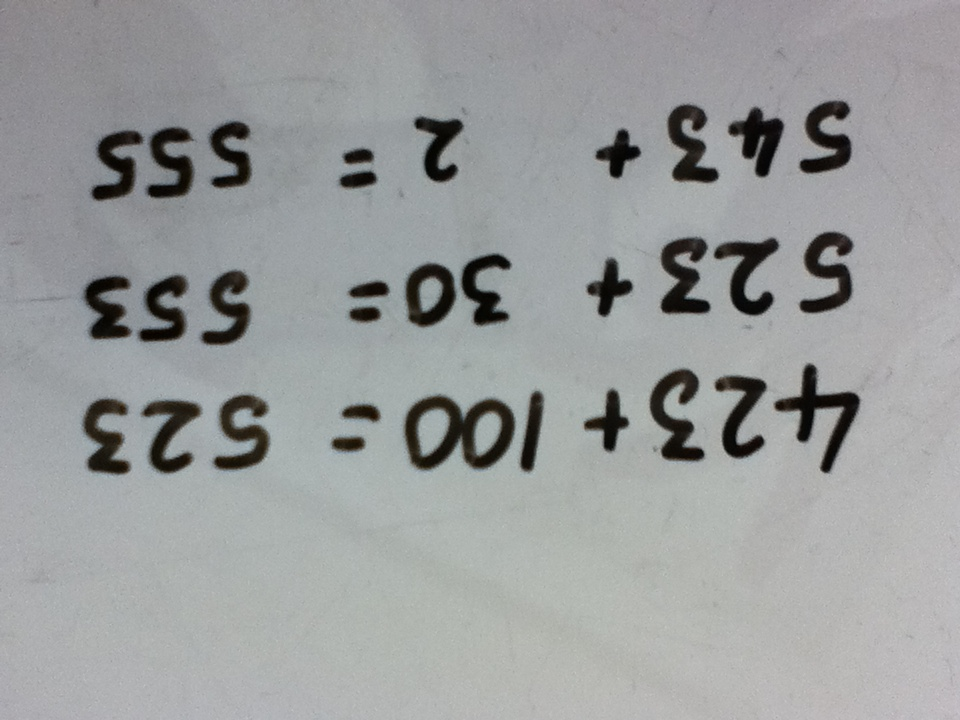 423+100=523
523+30=553
543+2=555